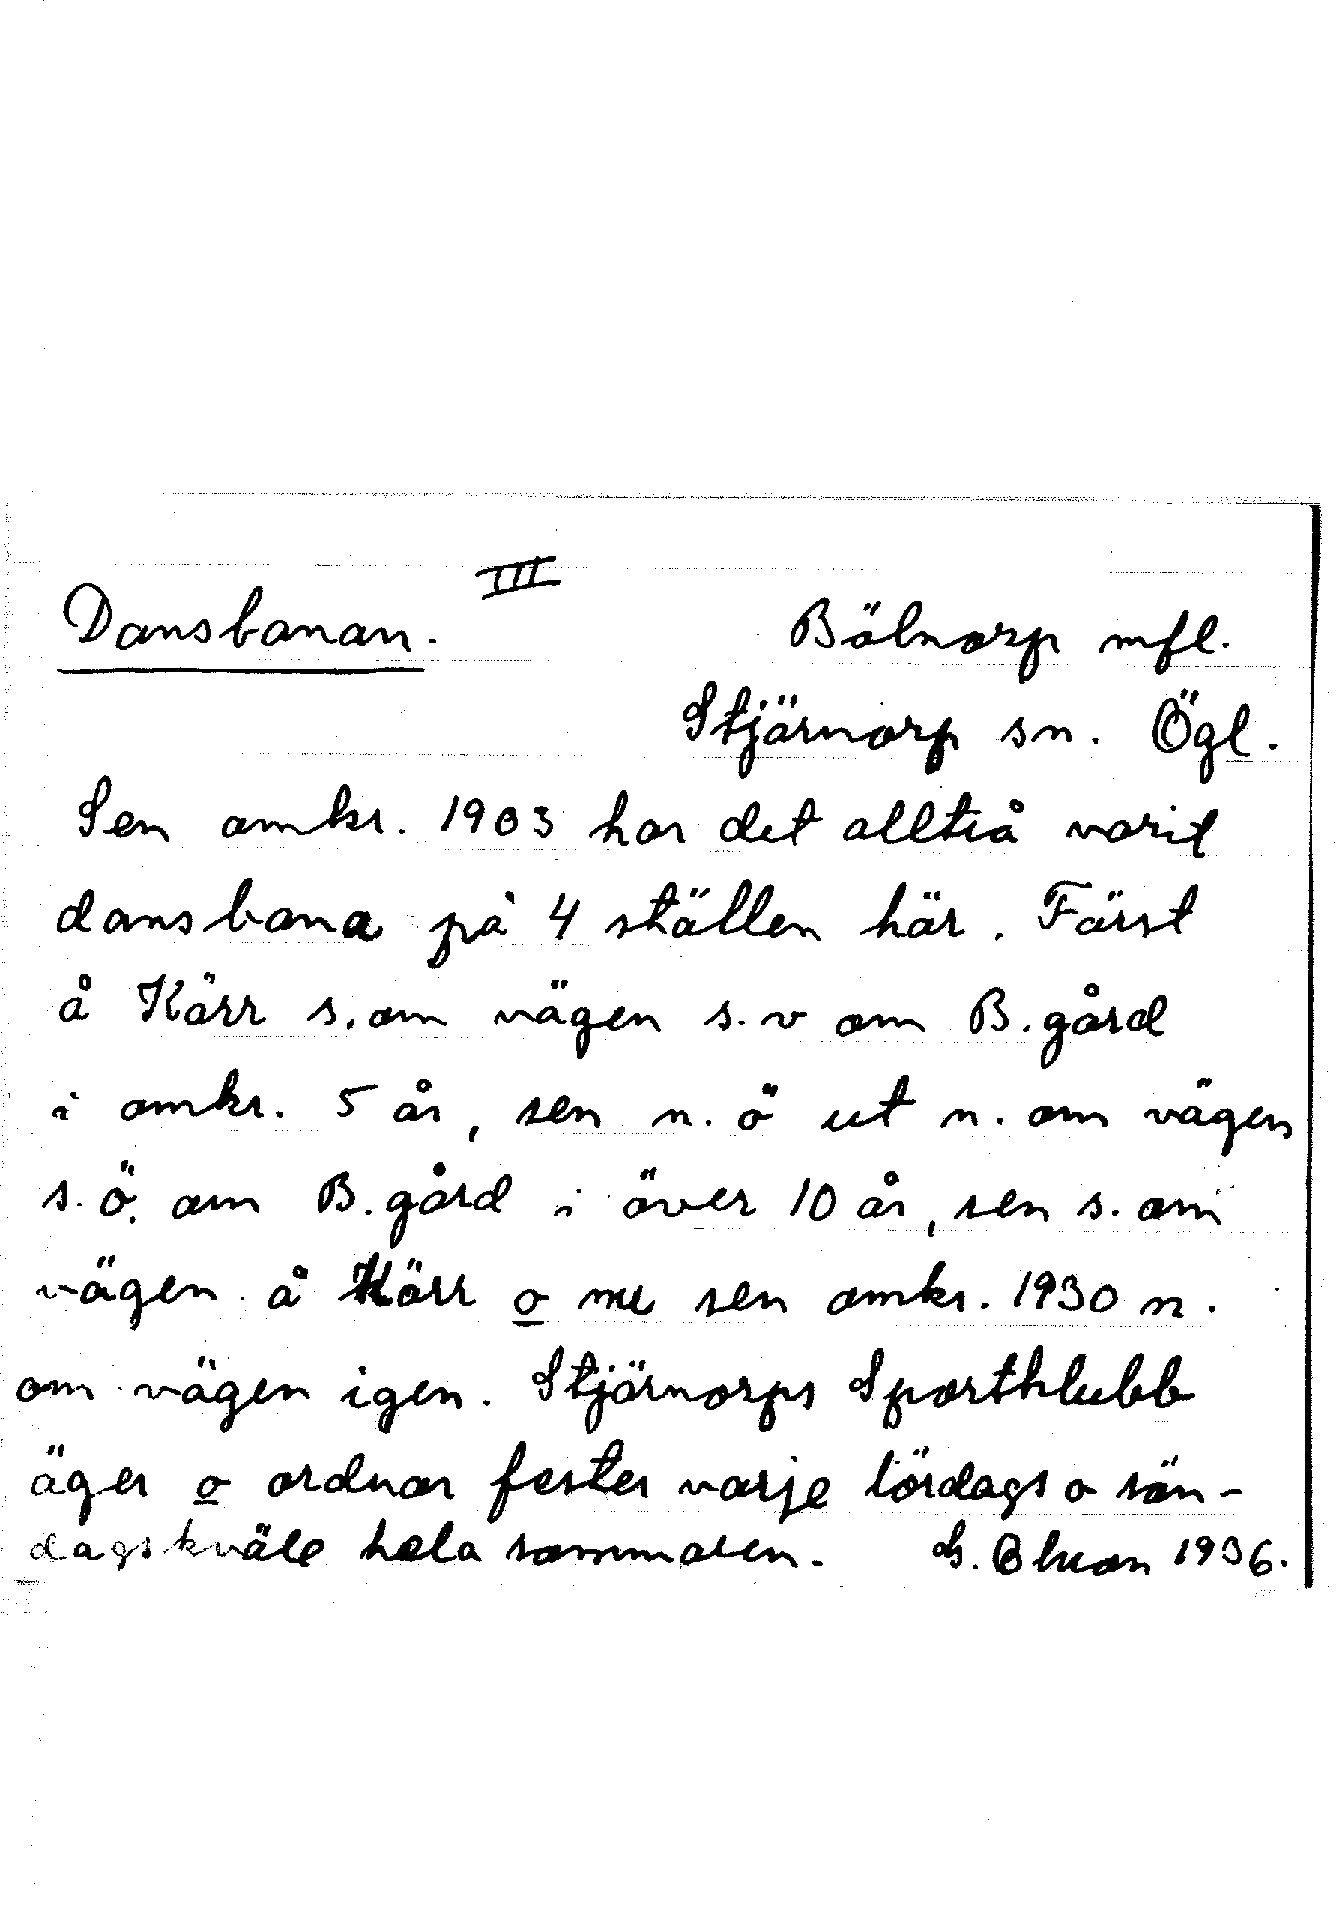 III
Dansbanan.
Bölnorp mfl.
Stjärnorp sn. Ögl.
Sen omkr. 1903 har det alltså varit
dansbana på 4 ställen här. Först
å Kärr s. om vägen s. v om B. gård
i omkr. 5 år, sen n. ö ut n. om vägen
s. ö. om B. gård i över 10 år, sen s. om
vägen å Kärr o nu sen omkr. 1930 n.
om vägen igen. Stjärnorps Sportklubb
äger o ordnar fester varje lördags o sön-
dagskväle hela sommaren. 1936.